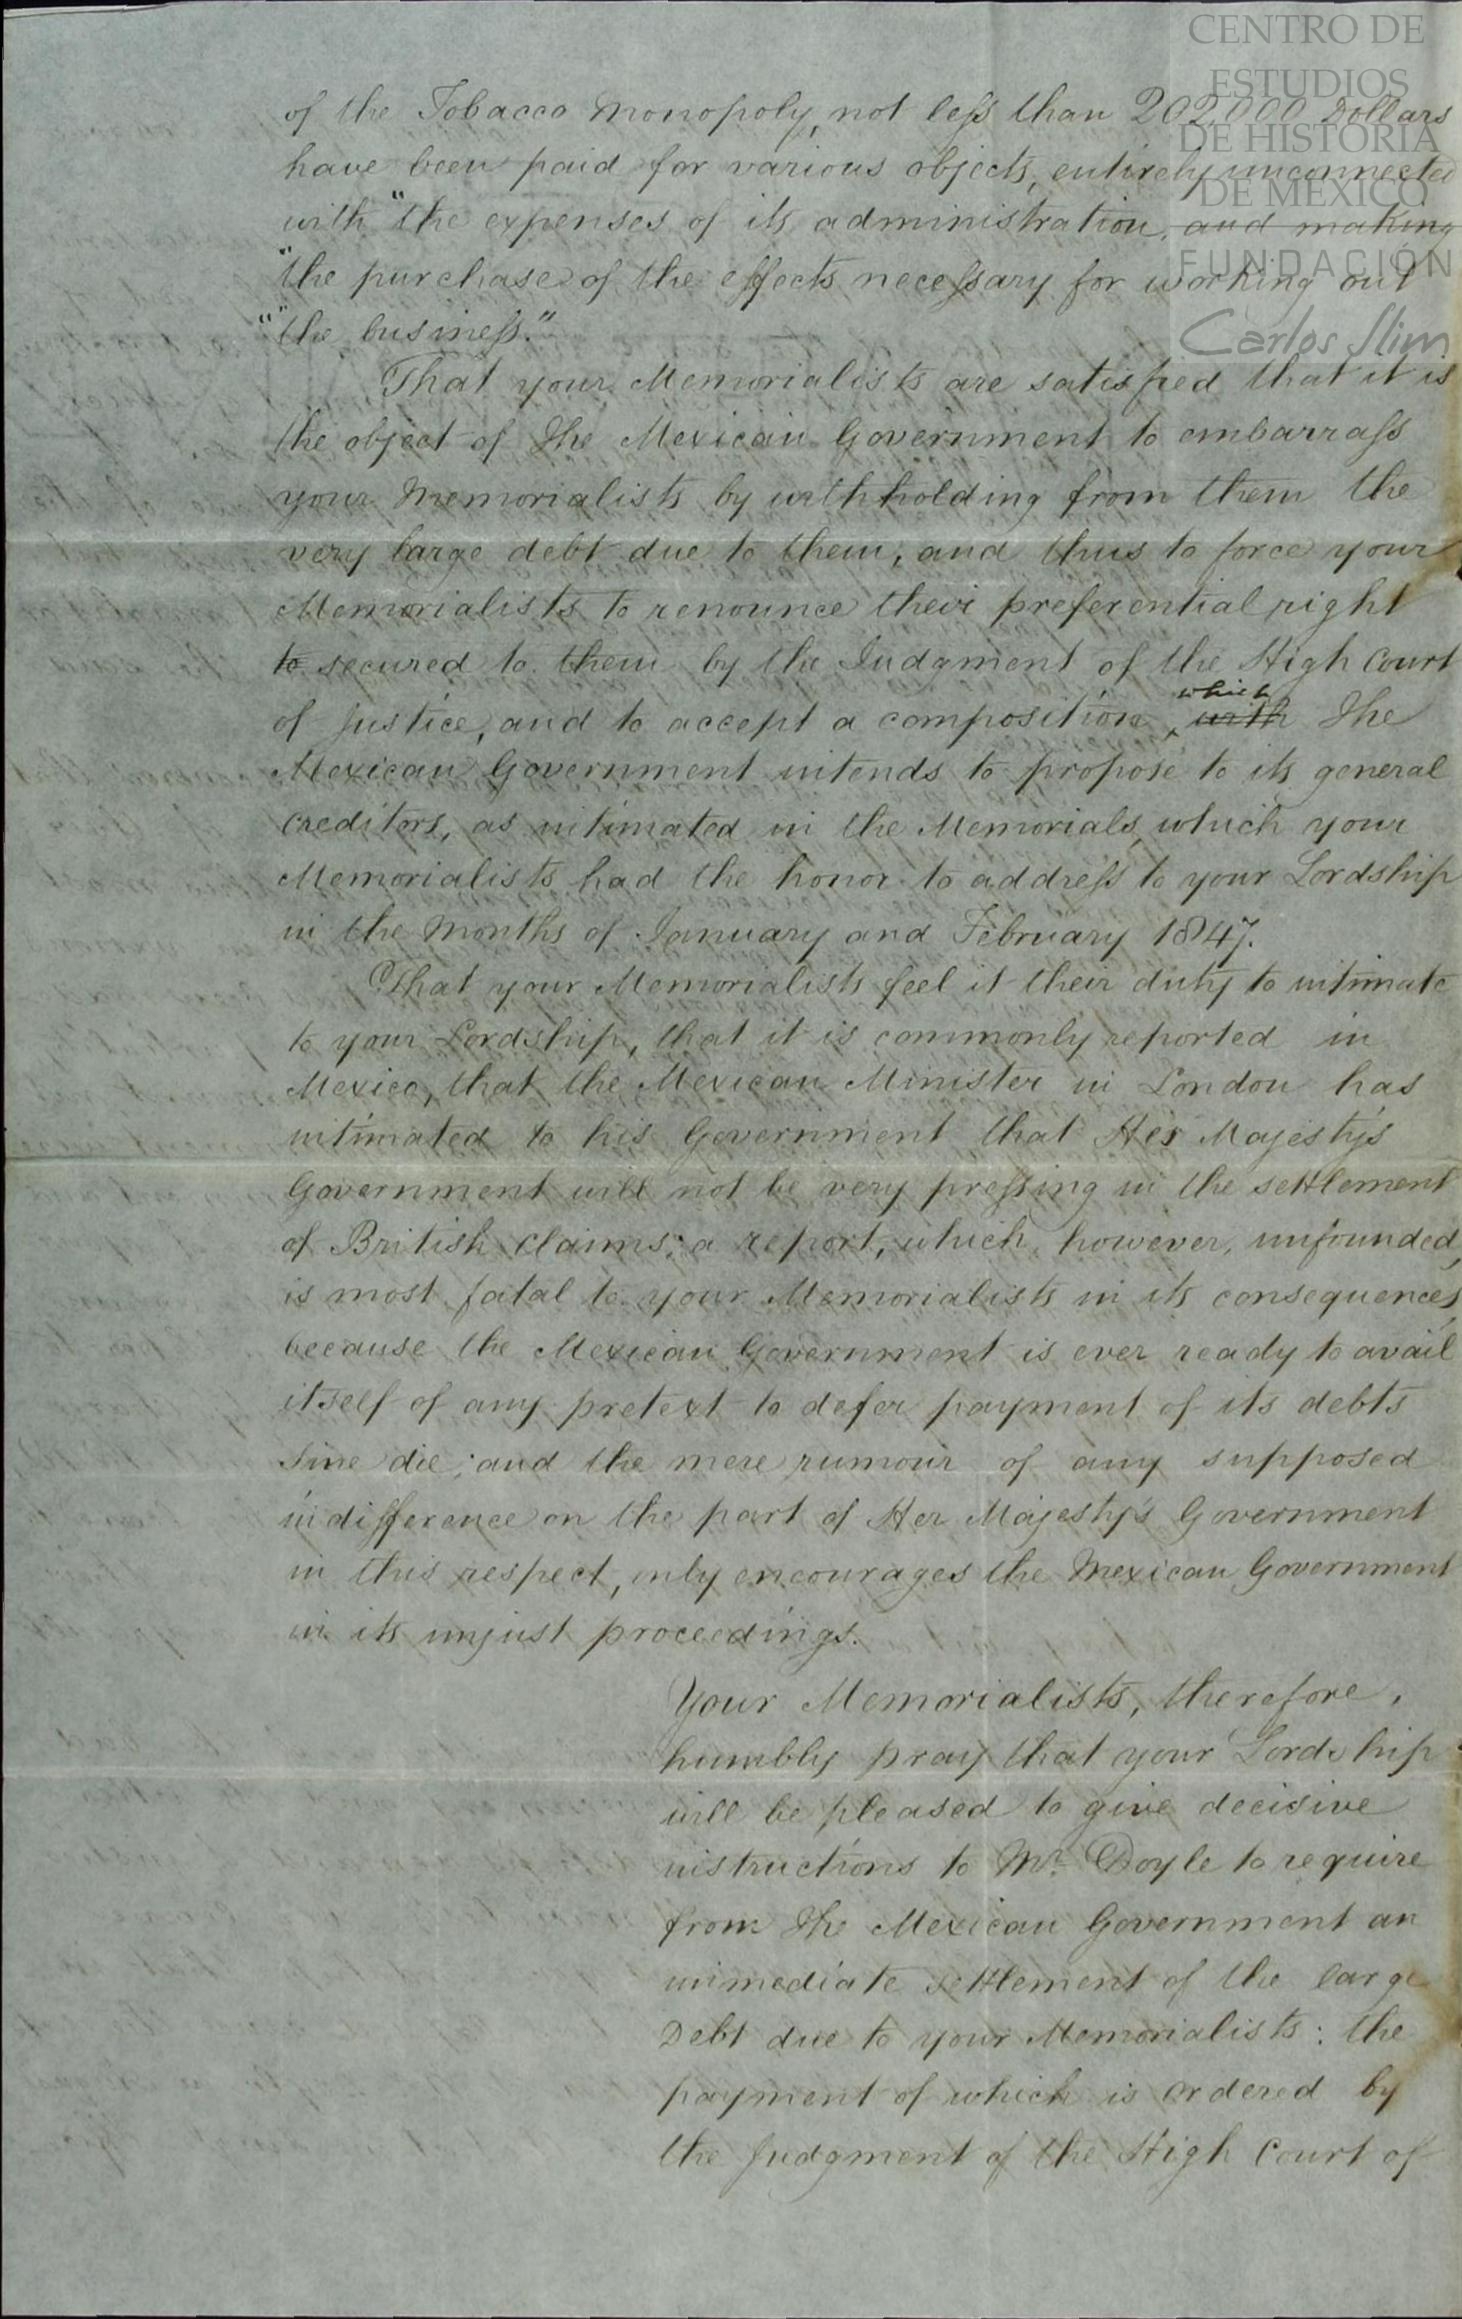 CENTRO DE
ESTUDIOS
DE HISTORIA
DE MEXICO
FUNDACIÓN
Carlos Slim
of the Tobacco Monopoly, not less than 202,000 Dollars
have been paid for various objects, entirely unconnected
with "the expenses of its administration, and making
"the purchase of the effects necessary for working out
"the business."
That your Memorialists are satisfied that it is
the object of the Mexican Government to embarrass
your Memorialists by withholding from them the
very large debt due to them, and thus to force your
Memorialists to renounce their preferential right
to secured to them by the Judgment of the High Court
of Justice, and to accept a composition, which with the
Mexican Government intends to propose to its general
creditors, as intimated in the Memorials, which your
Memorialists had the honor to address to your Lordship
in the Months of January and February 1847.
That your Memorialists feel it their duty to intimate
to your Lordship, that it is commonly reported in
Mexico, that the Mexican Minister in London has
intimated to his Government that Her Majesty's
Government will not be very pressing in the settlement
of British claims; a report, which, however, unfounded,
is most fatal to your Memorialists in its consequences,
because the Mexican Government is ever ready to avail
itself of any pretext to defer payment of its debts
sine die; and the mere rumour of any supposed
indifference on the part of Her Majesty's Government
in this respect, only encourages the Mexican Government
in its unjust proceedings.
Your Memorialists, therefore,
humbly pray that your Lordship
will be pleased to give decisive
instructions to Mr. Doyle to require
from the Mexican Government an
immediate settlement of the large
Debt due to your Memorialists: the
payment of which is ordered by
the Judgment of the High Court of